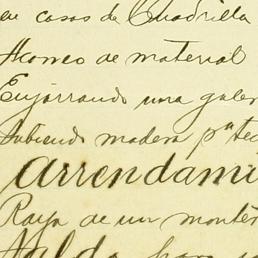 en casas de Cuadrilla
Acarreo de material
Enjarrando una galer
Subiendo madera pª te
Arrendami
Raya de un monte